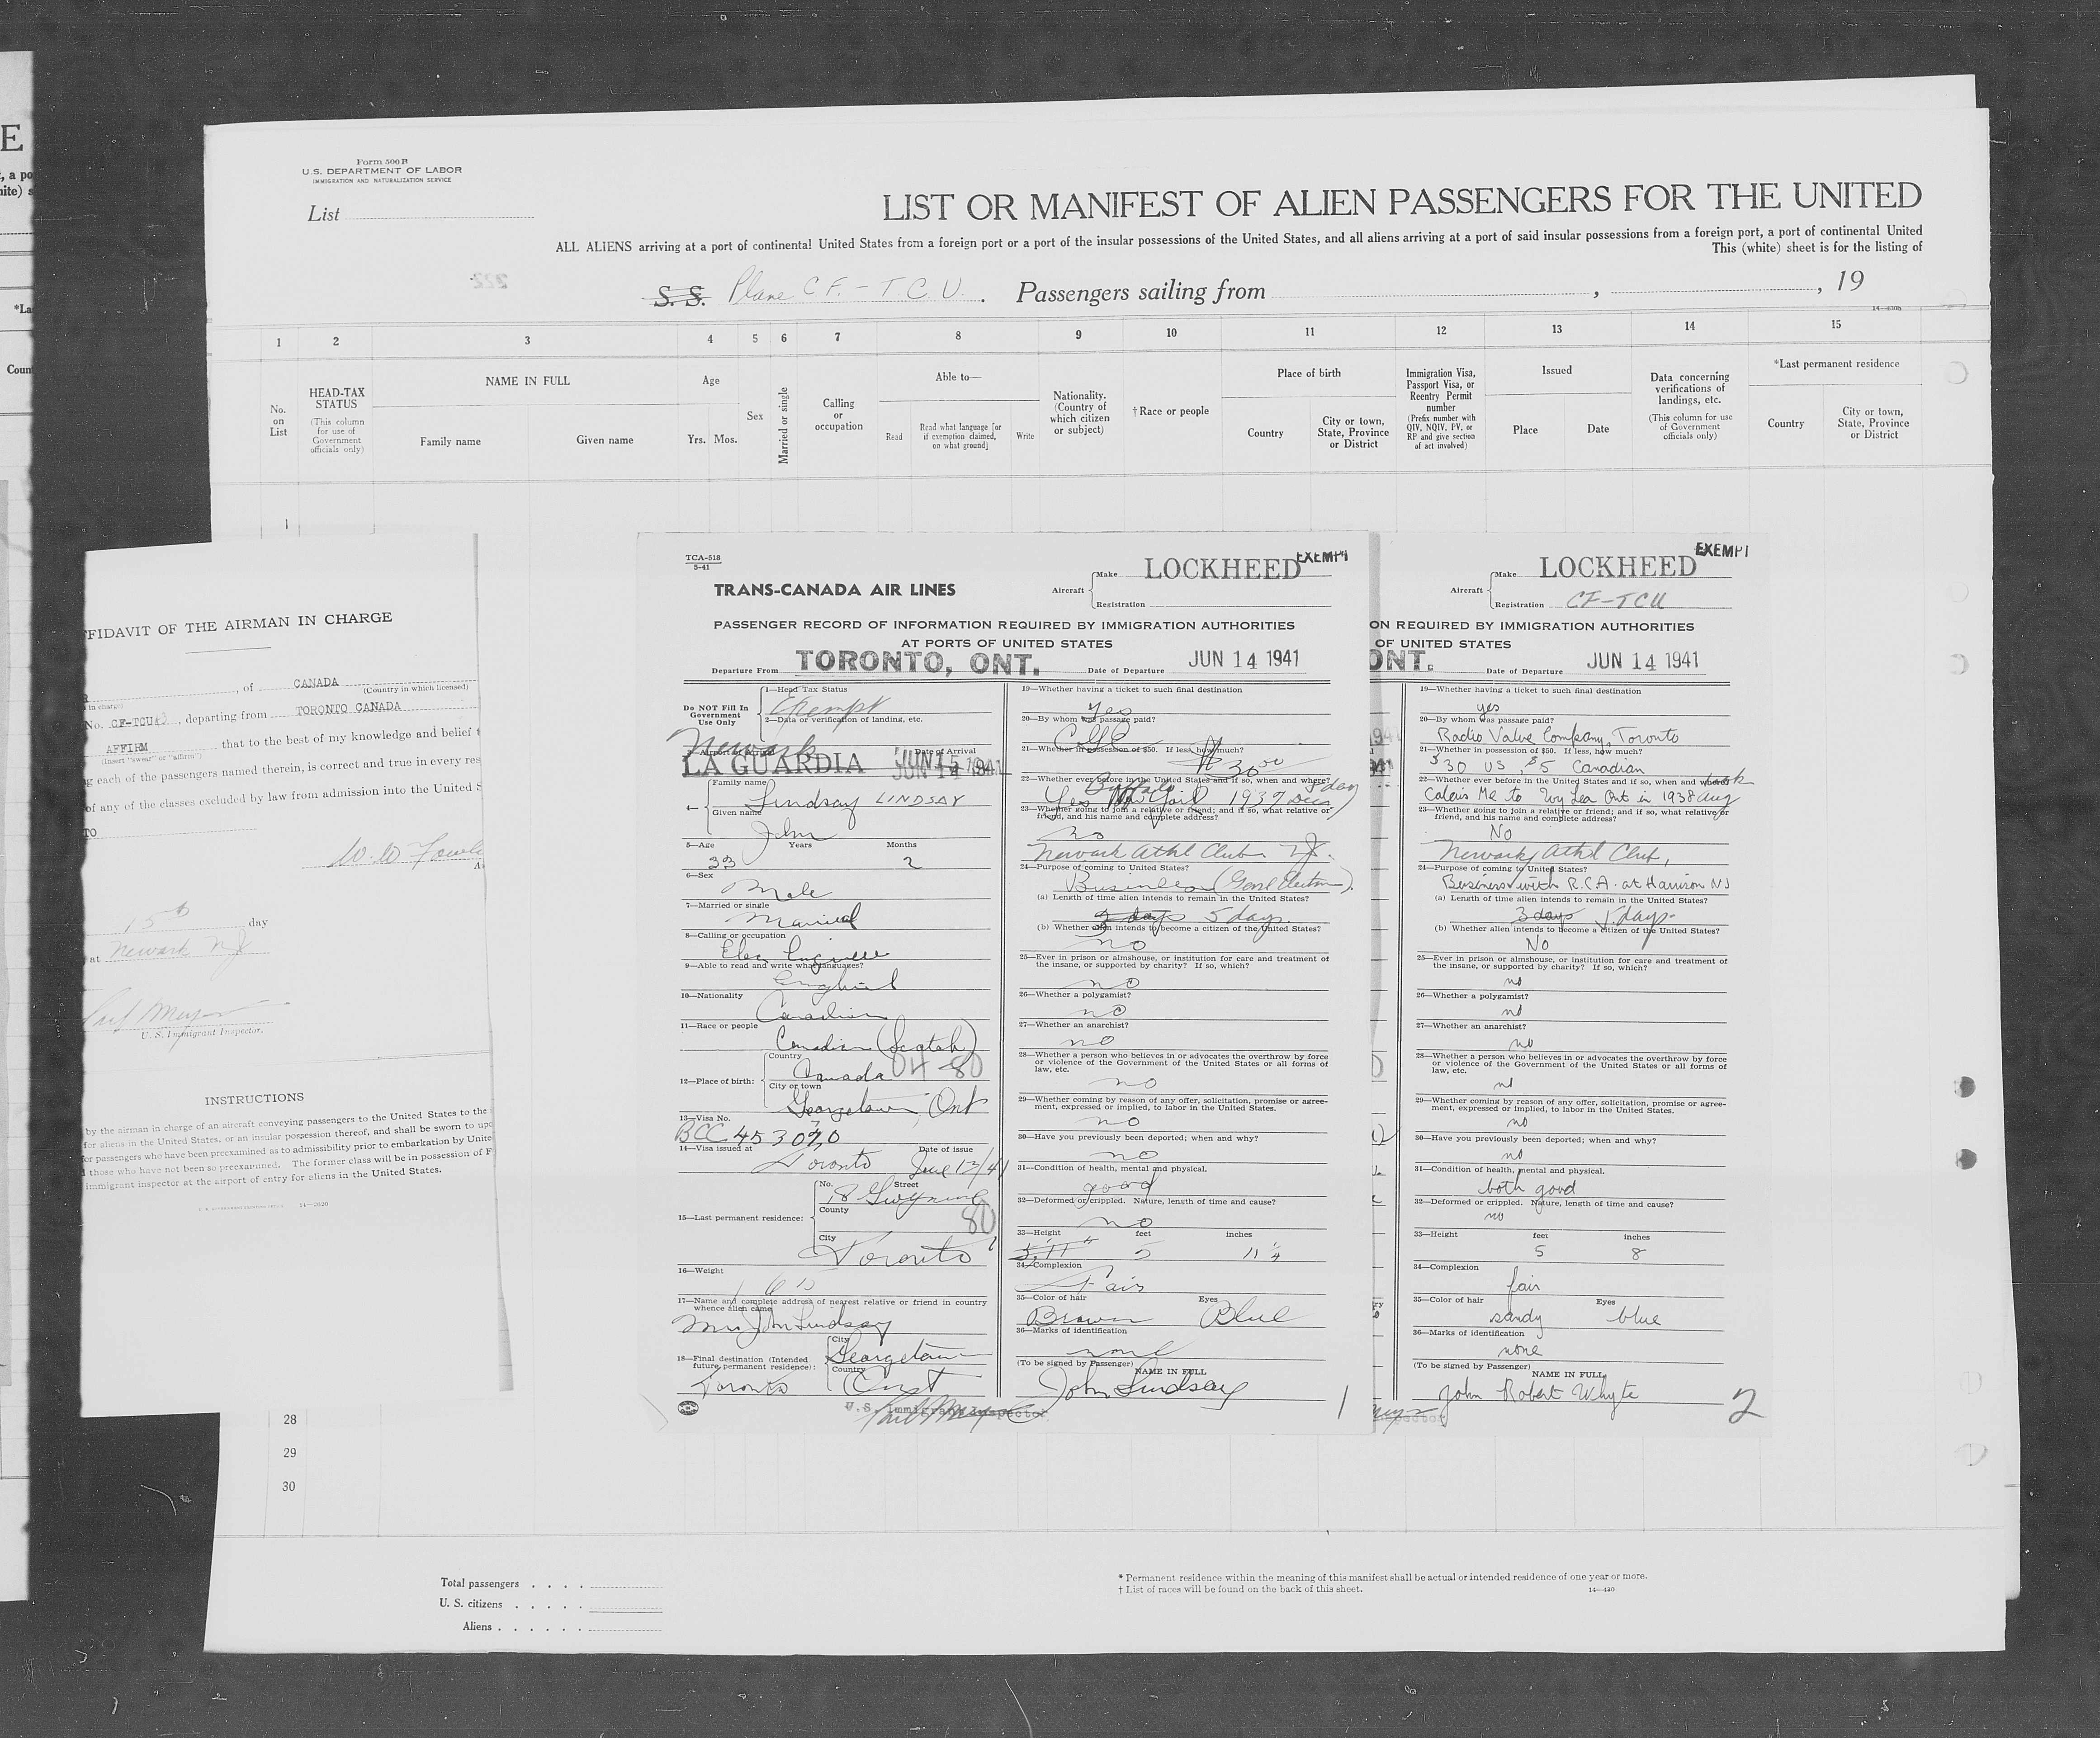 E
, a po
ite) s
*La
Coun
Form 500 B
U.S. DEPARTMENT OF LABOR
IMMIGRATION AND NATURALIZATION SERVICE
List
LIST OR MANIFEST OF ALIEN PASSENGERS FOR THE UNITED
ALL ALIENS arriving at a port of continental United States from a foreign port or a port of the insular possessions of the United States, and all aliens arriving at a port of said insular possessions from a foreign port, a port of continental United
This (white) sheet is for the listing of
S. S. Plane C F. - T C U. Passengers sailing from , , 19
1 2 3 4 5 6 7 8 9 10 11 12 13 14 15
No. on List
HEAD-TAX STATUS
(This column for use of Government officials only)
NAME IN FULL
Family name Given name
Age
Yrs. Mos.
Sex
Married or single
Calling or occupation
Able to—
Read
Read what language [or if exemption claimed, on what ground]
Write
Nationality. (Country of which citizen or subject)
† Race or people
Place of birth
Country
City or town, State, Province or District
Immigration Visa, Passport Visa, or Reentry Permit number
(Prefix number with QIV, NQIV, PV, or RP and give section of act involved)
Issued
Place Date
Data concerning verifications of landings, etc.
(This column for use of Government officials only)
*Last permanent residence
Country
City or town, State, Province or District
1
FFIDAVIT OF THE AIRMAN IN CHARGE
, of CANADA
(Country in which licensed)
No. CF-TCU , departing from TORONTO CANADA
AFFIRM that to the best of my knowledge and belief
(Insert "swear" or "affirm")
g each of the passengers named therein, is correct and true in every res
of any of the classes excluded by law from admission into the United S
TO
15th day
at Newark NJ
U. S. Immigrant Inspector.
INSTRUCTIONS
by the airman in charge of an aircraft conveying passengers to the United States to the
for aliens in the United States, or an insular possession thereof, and shall be sworn to upo
or passengers who have been preexamined as to admissibility prior to embarkation by Unite
those who have not been so preexamined. The former class will be in possession of F
immigrant inspector at the airport of entry for aliens in the United States.
TCA-518
5-41
TRANS-CANADA AIR LINES
Aircraft Make LOCKHEED EXEMPT
Registration
PASSENGER RECORD OF INFORMATION REQUIRED BY IMMIGRATION AUTHORITIES
AT PORTS OF UNITED STATES
Departure From TORONTO, ONT. Date of Departure JUN 14 1941
Do NOT Fill In Government Use Only
1—Head Tax Status
Exempt
2—Data or verification of landing, etc.
Newark
Date of Arrival
LA GUARDIA JUN 15 1941
4— Family name Lindsay LINDSAY
Given name John
5—Age Years Months
33 2
6—Sex
Male
7—Married or single
Married
8—Calling or occupation
Elec Engineer
9—Able to read and write what languages?
English
10—Nationality
Canadian
11—Race or people
Canadian (Scotch)
12—Place of birth: Country Canada 04-80
City or town
Georgetown Ont
13—Visa No.
BCC 453070
14—Visa issued at Date of issue
Toronto June 12/41
15—Last permanent residence: No. Street
18 Gwynne
County 80
City
Toronto
16—Weight
17—Name and complete address of nearest relative or friend in country whence alien came
Mrs John Lindsay
18—Final destination (Intended future permanent residence): City Georgetown
Country Ont
Toronto
U.S. Immigrant Inspector
19—Whether having a ticket to such final destination
Yes
20—By whom was passage paid?
21—Whether in possession of $50. If less, how much?
$30.00
22—Whether ever before in the United States and if so, when and where?
Buffalo
Yes 1937 Dec
23—Whether going to join a relative or friend; and if so, what relative or friend, and his name and complete address?
no
Newark Athl Club NJ.
24—Purpose of coming to United States?
Business (Genl Electric).
(a) Length of time alien intends to remain in the United States?
3 days 5 days.
(b) Whether alien intends to become a citizen of the United States?
no
25—Ever in prison or almshouse, or institution for care and treatment of the insane, or supported by charity? If so, which?
no
26—Whether a polygamist?
no
27—Whether an anarchist?
no
28—Whether a person who believes in or advocates the overthrow by force or violence of the Government of the United States or all forms of law, etc.
no
29—Whether coming by reason of any offer, solicitation, promise or agreement, expressed or implied, to labor in the United States.
no
30—Have you previously been deported; when and why?
no
31—Condition of health, mental and physical.
good
32—Deformed or crippled. Nature, length of time and cause?
no
33—Height feet inches
5'11" 5 11 1/4
34—Complexion
Fair
35—Color of hair Eyes
Brown Blue
36—Marks of identification
none
(To be signed by Passenger) NAME IN FULL
John Lindsay 1
EXEMPT
Aircraft Make LOCKHEED
Registration CF-TCU
ON REQUIRED BY IMMIGRATION AUTHORITIES
OF UNITED STATES
ONT. Date of Departure JUN 14 1941
19—Whether having a ticket to such final destination
yes
20—By whom was passage paid?
Radio Valve Company, Toronto
21—Whether in possession of $50. If less, how much?
$30 US, $5 Canadian
22—Whether ever before in the United States and if so, when and where?
Calais Me to Ont in 1938 Aug
23—Whether going to join a relative or friend; and if so, what relative or friend, and his name and complete address?
No
Newark Athl Club,
24—Purpose of coming to United States?
Business with R.C.A. at Harrison NJ
(a) Length of time alien intends to remain in the United States?
3 days 5 days
(b) Whether alien intends to become a citizen of the United States?
No
25—Ever in prison or almshouse, or institution for care and treatment of the insane, or supported by charity? If so, which?
no
26—Whether a polygamist?
no
27—Whether an anarchist?
no
28—Whether a person who believes in or advocates the overthrow by force or violence of the Government of the United States or all forms of law, etc.
no
29—Whether coming by reason of any offer, solicitation, promise or agreement, expressed or implied, to labor in the United States.
no
30—Have you previously been deported; when and why?
no
31—Condition of health, mental and physical.
both good
32—Deformed or crippled. Nature, length of time and cause?
no
33—Height feet inches
5 8
34—Complexion
fair
35—Color of hair Eyes
sandy blue
36—Marks of identification
none
(To be signed by Passenger) NAME IN FULL
John Robert Whyte 2
28
29
30
Total passengers . . . .
U. S. citizens . . . . .
Aliens . . . . . .
* Permanent residence within the meaning of this manifest shall be actual or intended residence of one year or more.
† List of races will be found on the back of this sheet.